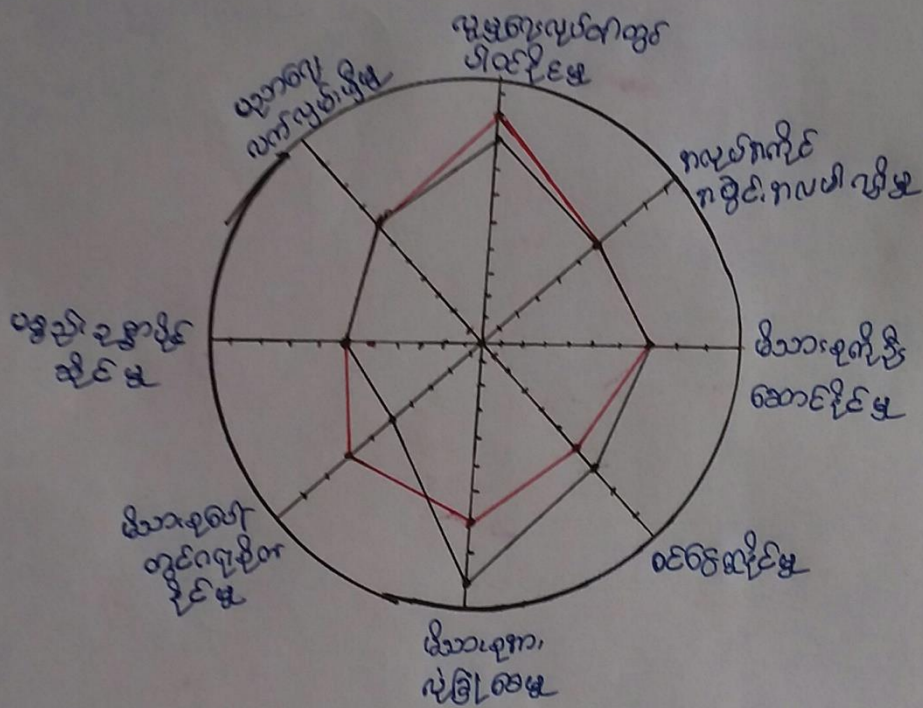 လူမှုရေးလုပ်ငန်းတွင်
ပါဝင်နိုင်မှု
အလုပ်အကိုင်
အခွင့်အလမ်းရှိမှု
မိသားစုကိုဦး
ဆောင်နိုင်မှု
ဝင်ငွေရနိုင်မှု
မိသားစုအား
လုံခြုံစေမှု
မိသားစုပေါ်
တွင်ဂရုစိုက်
နိုင်မှု
ပစ္စည်းဥစ္စာပိုင်
ဆိုင်မှု
ပညာရေး
လက်လှမ်းမှီမှု